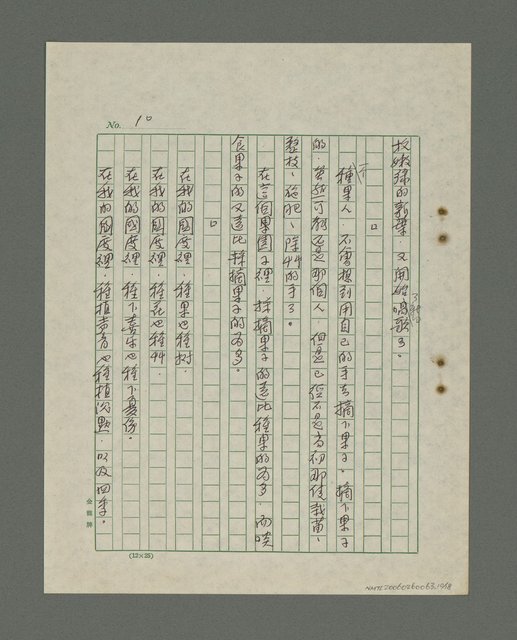 No. 10
枝嫩綠的新葉,又開始唱歌了。
□
種果人,不會想到用自己的手去摘下果子。摘下果子
的,當然可能還是那個人,但是已經不是當初那佳栽苗、
整枝、施肥、除草的手了。
在這個果園子裡,採摘果子的遠比種果的為多,而吃
食果子的又遠比採摘果子的為多。
□
在我的國度裡,種果也種樹。
在我的國度裡,種花也種草。
在我的國度裡,種下喜樂也種下憂傷。
在我的國度裡,種植声音也種植沉默,以及四季。
金龍牌
(12×25)
NMTL20060260063.1018